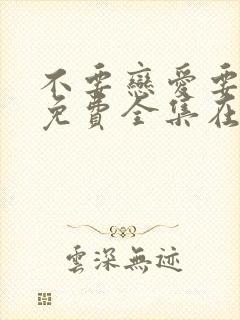 不要戀愛要
免費全集在
雲深無迹